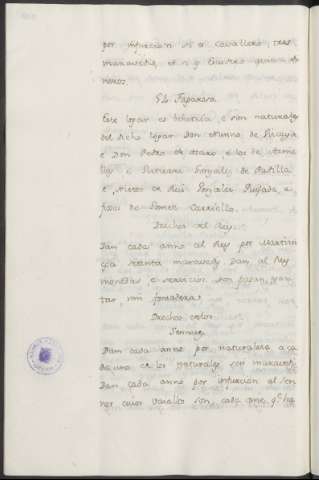 por infurcion si es cavallero, tres
maravedis, et si
menos.
Este logar es behetria, e son naturales
del dicho logar Don Nunno de Vizcaya
e Don Pedro de Haro, e los de
e Gonzalez de Padilla
e nietos de Rui Gonzalez Quijada, e
fijos de Gomez Carriello.
Derechos del Rey.
Dan cada anno al Rey por Martini
ega treinta maravedis. Dan al Rey
monedas e servicios, non pagan yan
tar, nin fonsadera.
Derechos de los
Sennores
Dan cada anno por naturaleza a ca
da uno de los naturales seis maravedis
Dan cada anno por infurcion al sen
nor cuios vasallos son, cada que